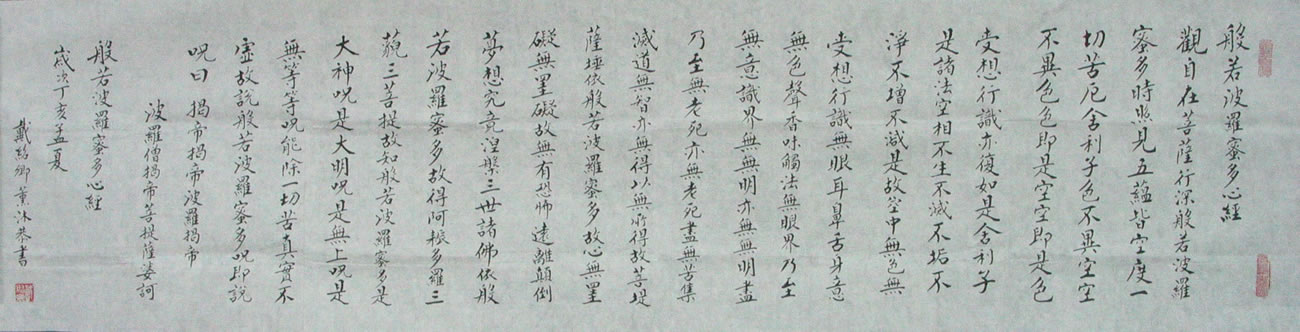 般若波羅蜜多心經
觀自在菩薩行深般若波羅
蜜多時照見五蘊皆空度一
切苦厄舍利子色不異空空
不異色色即是空空即是色
受想行識亦復如是舍利子
是諸法空相不生不滅不垢不
淨不增不減是故空中無色無
受想行識無眼耳鼻舌身意
無色聲香味觸法無眼界乃至
無意識界無無明亦無無明盡
乃至無老死亦無老死盡無苦集
滅道無智亦無得以無所得故菩提
薩埵依般若波羅蜜多故心無罣
礙無罣礙故無有恐怖遠離顛倒
夢想究竟涅槃三世諸佛依般
若波羅蜜多故得阿耨多羅三
藐三菩提故知般若波羅蜜多是
大神呪是大明呪是無上呪是
無等等呪能除一切苦真實不
虛故說般若波羅蜜多呪即說
呪曰 揭帝揭帝波羅揭帝
波羅僧揭帝菩提薩婆訶
般若波羅蜜多心經
歲次丁亥孟夏
戴 卿薰沐恭書